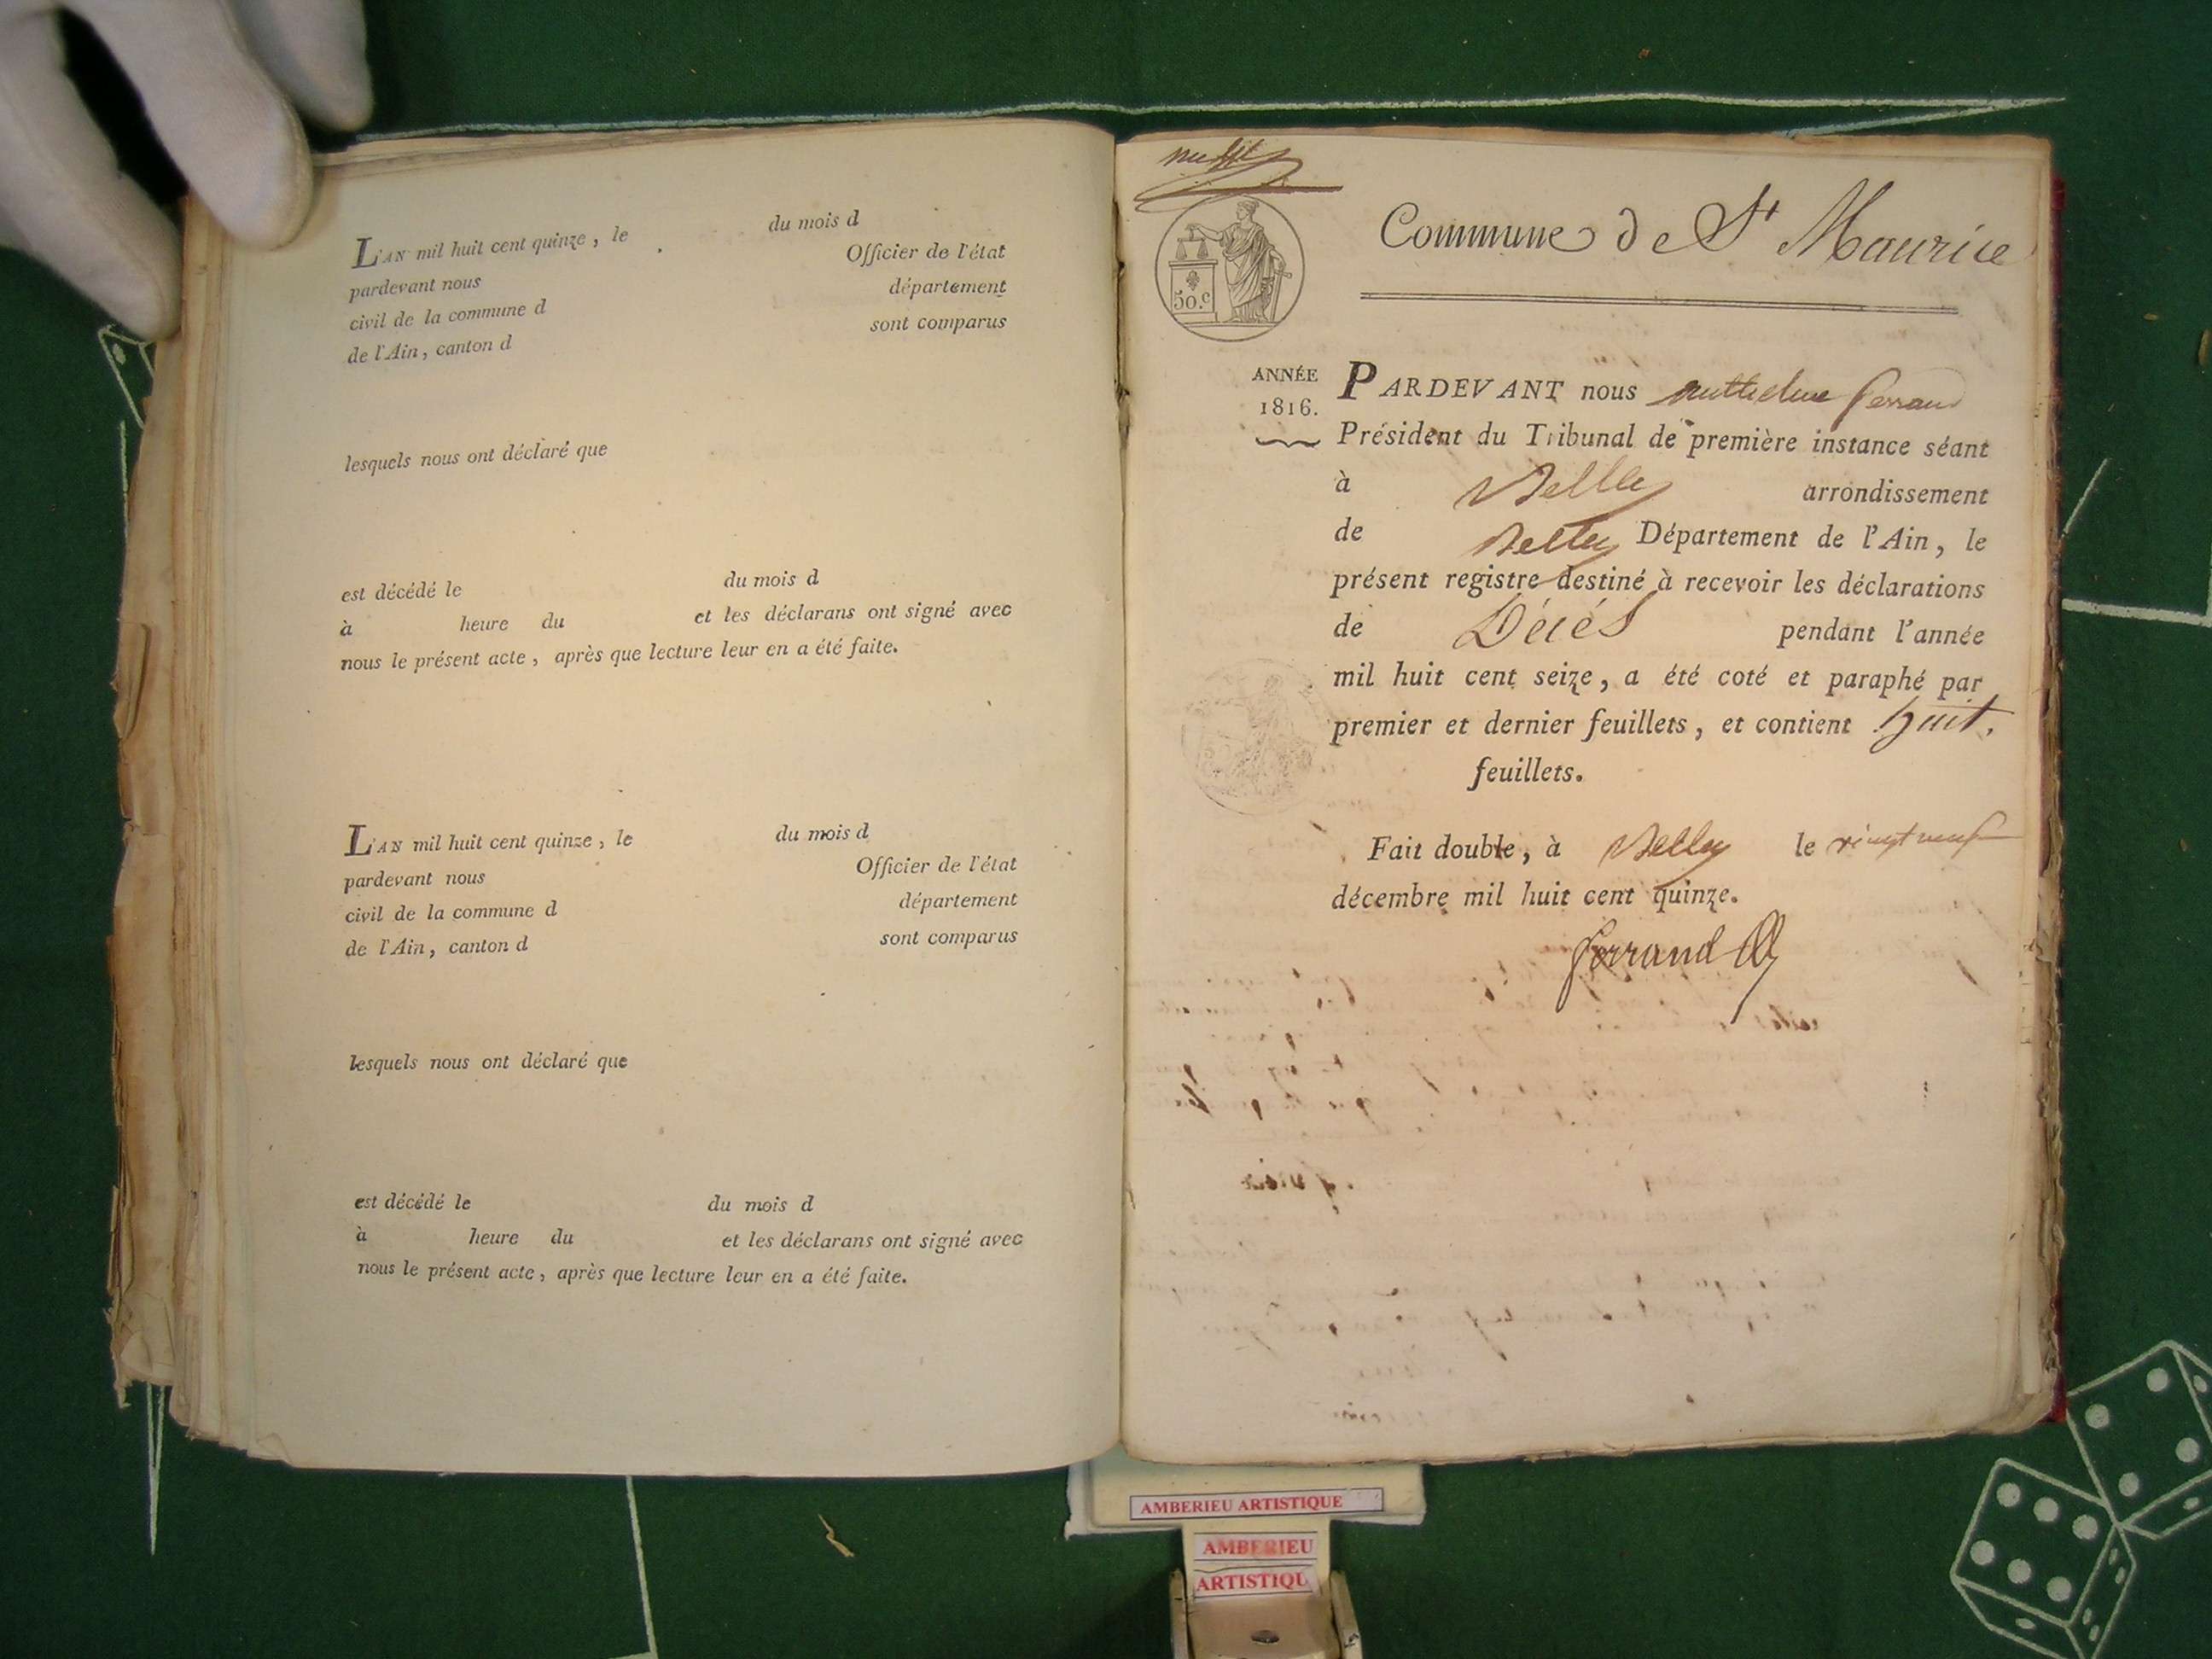 L'AN mil huit cent quinze, le du mois d
pardevant nous Officier de l'état
civil de la commune d département
de l'Ain, canton d sont comparus
lesquels nous ont déclaré que
est décédé le du mois d
à heure du et les déclarans ont signé avec
nous le présent acte, après que lecture leur en a été faite.
L'AN mil huit cent quinze, le du mois d
pardevant nous Officier de l'état
civil de la commune d département
de l'Ain, canton d sont comparus
lesquels nous ont déclaré que
est décédé le du mois d
à heure du et les déclarans ont signé avec
nous le présent acte, après que lecture leur en a été faite.
Commune de St Maurice
50.c
ANNÉE
1816.
PARDEVANT nous Ferrand
Président du Tribunal de première instance séant
à Belley arrondissement
de Belley Département de l'Ain, le
présent registre destiné à recevoir les déclarations
de Décés pendant l'année
mil huit cent seize, a été coté et paraphé par
premier et dernier feuillets, et contient huit.
feuillets.
Fait double, à Belley le vingt neuf
décembre mil huit cent quinze.
Ferrand
AMBERIEU ARTISTIQUE
AMBERIEU
ARTISTIQU